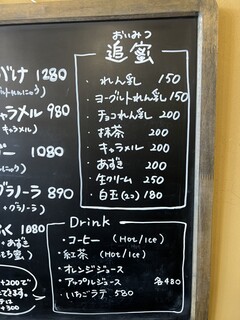 おいみつ
追蜜
・れん乳 150
・ヨーグルトれん乳 150
・チョコれん乳 200
・抹茶 200
・キャラメル 200
・あずき 200
・生クリーム 250
・白玉(2コ) 180
がけ 1280
ャラメル 980
キャラメル)
ー 1080
グラノーラ 890
・グラノーラ)
1080
・あずき
+200で
できます。
+300
Drink
・コーヒー (Hot/Ice)
・紅茶 (Hot/Ice)
・オレンジジュース
・アップルジュース 各480
・いちごラテ 580